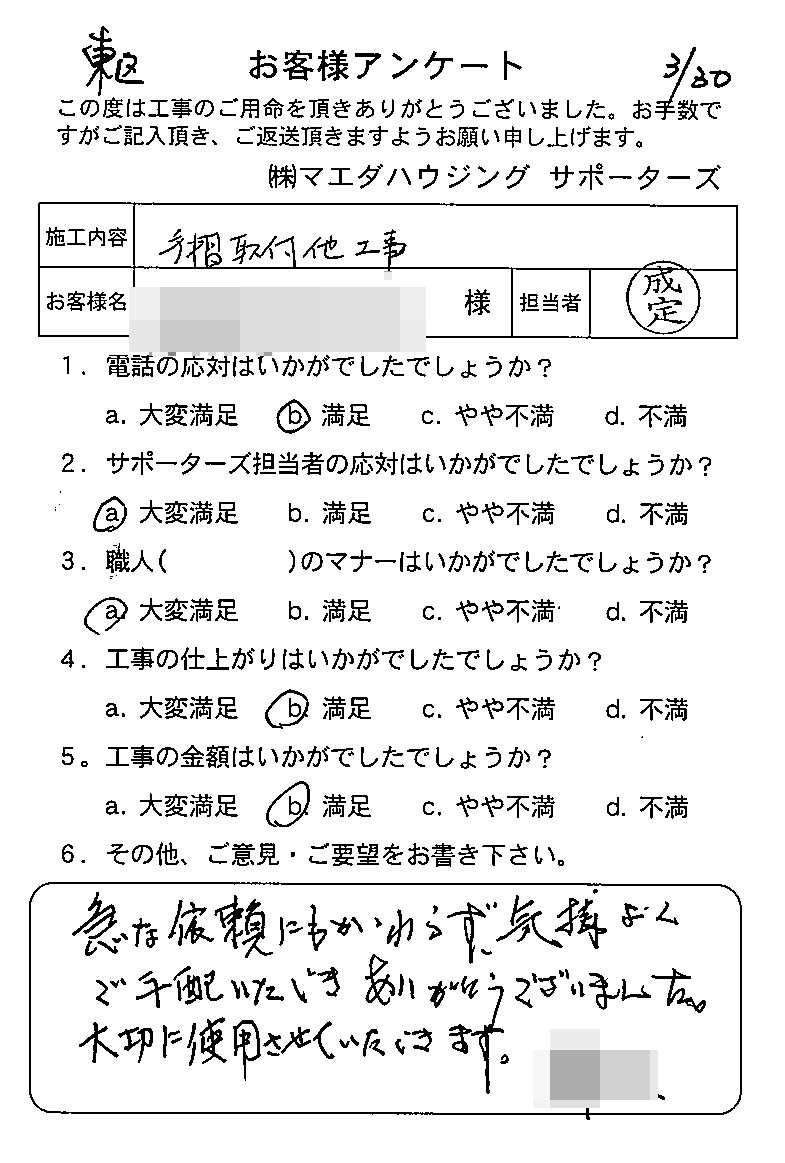 東区 お客様アンケート 3/30
この度は工事のご用命を頂きありがとうございました。お手数で
すがご記入頂き、ご返送頂きますようお願い申し上げます。
㈱マエダハウジング サポーターズ
施工内容 手摺取付他工事
お客様名 様 担当者 成定
1. 電話の応対はいかがでしたでしょうか?
a. 大変満足 b. 満足 c. やや不満 d. 不満
2. サポーターズ担当者の応対はいかがでしたでしょうか?
a. 大変満足 b. 満足 c. やや不満 d. 不満
3. 職人( )のマナーはいかがでしたでしょうか?
a. 大変満足 b. 満足 c. やや不満 d. 不満
4. 工事の仕上がりはいかがでしたでしょうか?
a. 大変満足 b. 満足 c. やや不満 d. 不満
5。工事の金額はいかがでしたでしょうか?
a. 大変満足 b. 満足 c. やや不満 d. 不満
6. その他、ご意見・ご要望をお書き下さい。
急な依頼にもかかわらず、気持よく
ご手配いただき ありがとうございました。
大切に使用させていただきます。